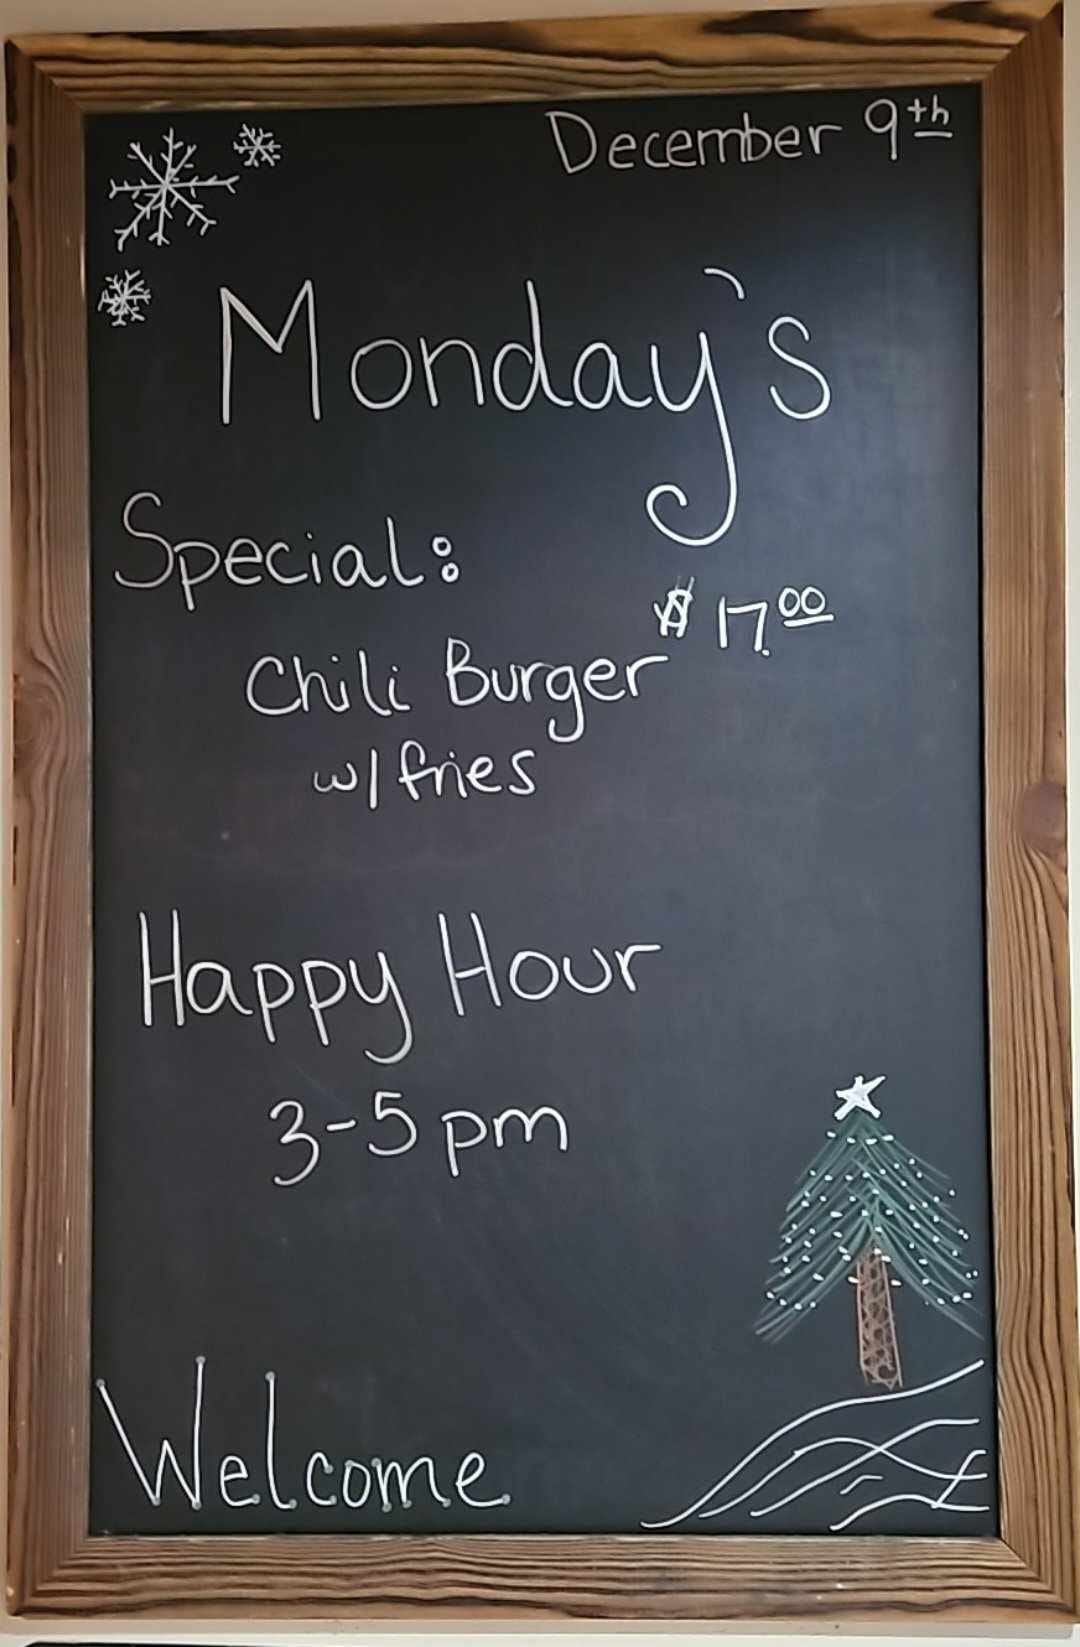 December 9th
Monday's
Special:
$17.00
Chili Burger
w/ fries
Happy Hour
3-5pm
Welcome